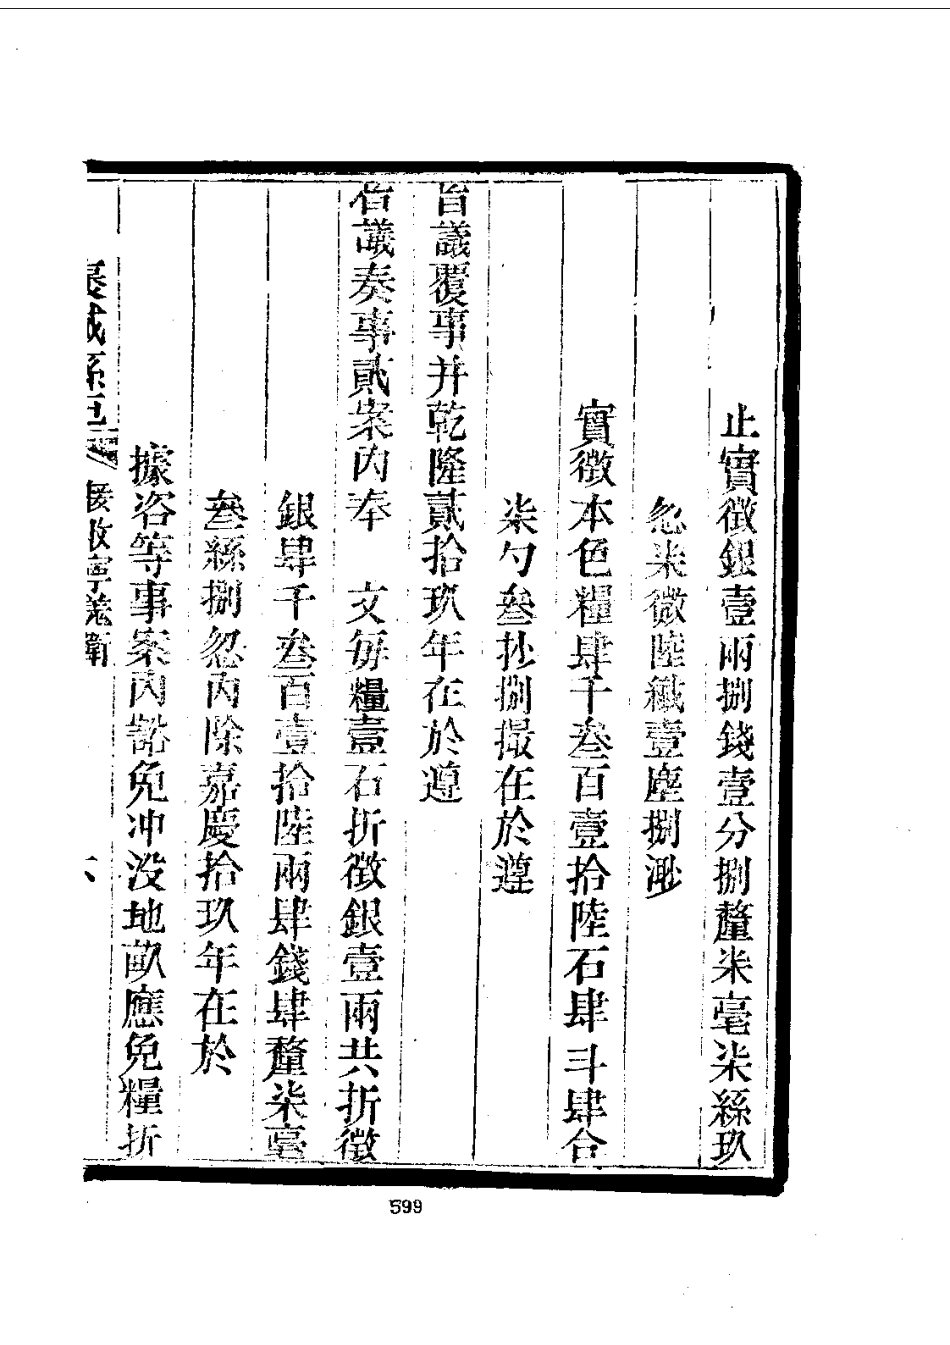 止實徵銀壹兩捌錢壹分捌釐柒毫柒絲玖
忽柒微陸纖壹塵捌渺
實徵本色糧肆千叁百壹拾陸石肆斗肆合
柒勺叁抄捌撮在於遵
旨議覆事并乾隆貳拾玖年在於遵
旨議奏事貳案內奉 文每糧壹石折徵銀壹兩共折徵
銀肆千叁百壹拾陸兩肆錢肆釐柒毫
叁絲捌忽內除嘉慶拾玖年在於
據咨等事案內豁免冲沒地畝應免糧折
縣
接收寧羌衛
599